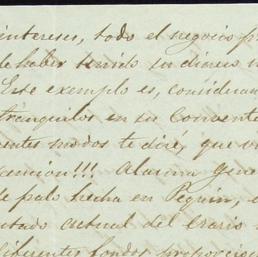 intereses, todo el negocio p
de haber tenido su dinero
Este ejemplo es, considera
tranquilos en su Convent
entes modos te diré, que v
cencion!!! Alarma gene
de palo hecha en Pequin, 
stado actual del erario
diferentes fondos proporcion